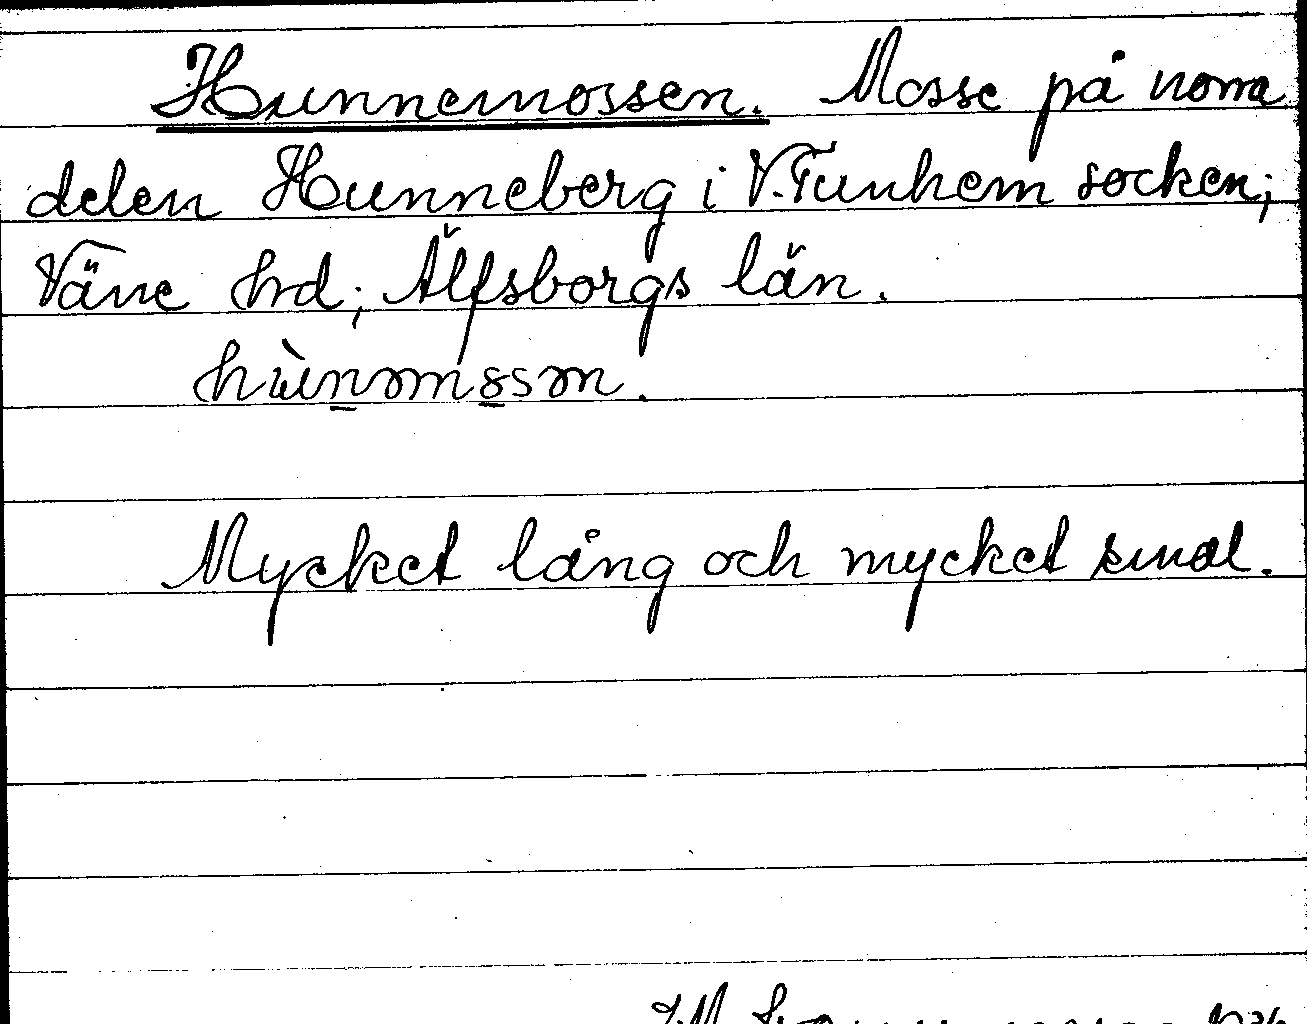 Hunnemossen. Mosse på norra
delen Hunneberg i V. Tunhem socken;
Väne hrd; Älfsborgs län.
Mycket lång och mycket smal.